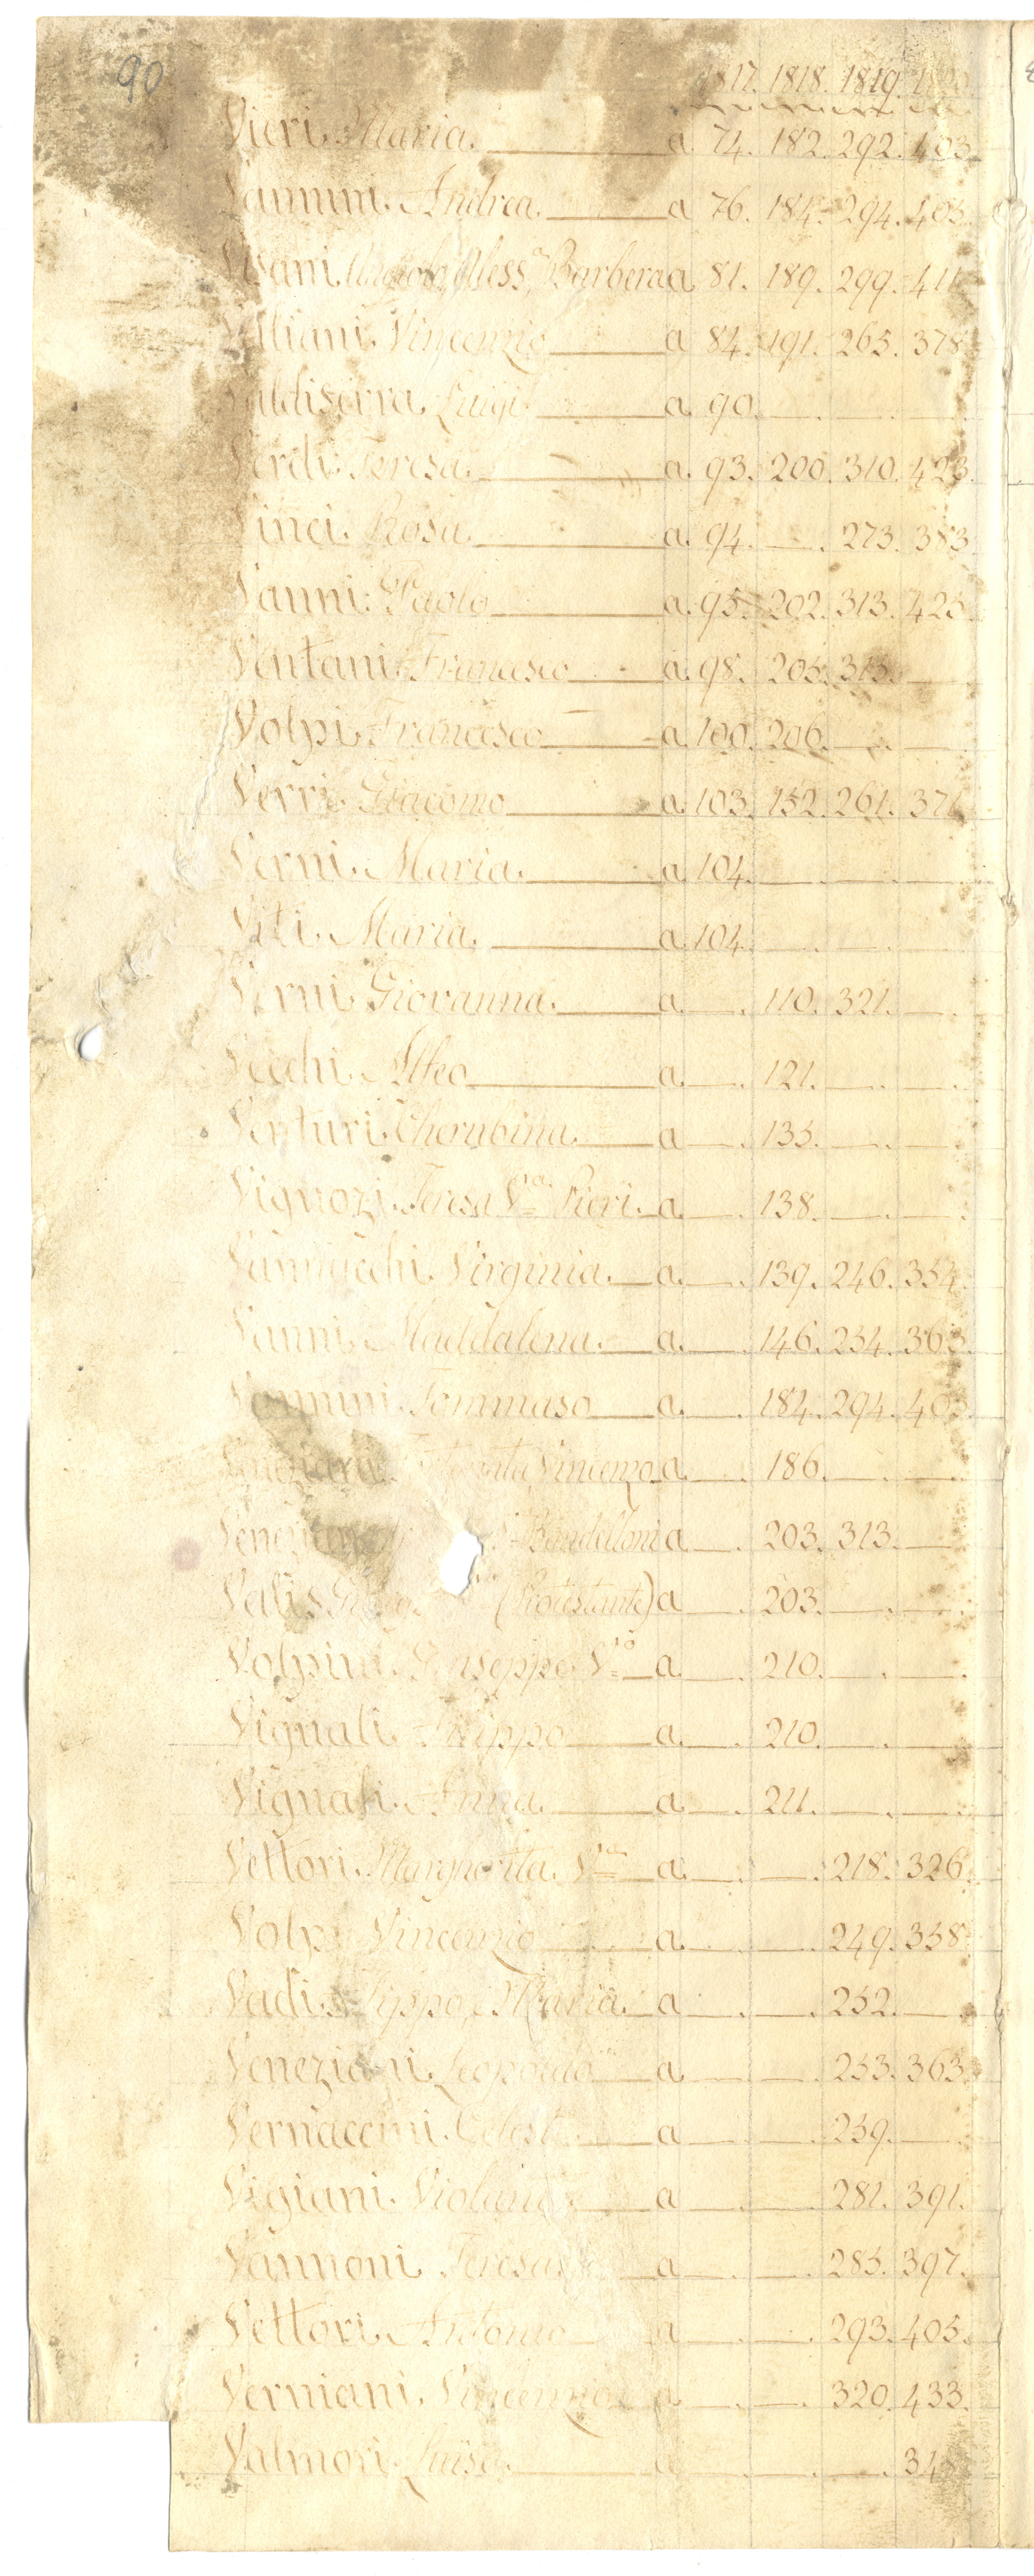 90
1817. 1818. 1819.
Vieri. Maria. a 74. 182. 292. 403.
Vannini. Andrea. a 76. 184. 294. 405.
Aless. Barbera a 81. 189. 299. 411
Vincenzio a 84. 191. 265. 378
Valdiserra. Luigi a 90.
Verdi. Teresa. a 93. 200. 310. 423.
Vinci. Rosa a. 94. 273. 383.
Vanni. Paolo a 95. 202. 313. 425.
Ventani. Francesco a. 98. 205. 315.
Volpi. Francesco a 100. 206.
Verri. Giacomo a 103. 152. 261. 371
Verni. Maria. a 104.
Viti. Maria. a 104.
Verni. Giovanna. a 110. 321.
Vecchi. Alfeo a 121.
Venturi. Cherubina. a 135.
Vignozi. Teresa Va. Pieri. a 138.
Vannucchi. Virginia. a 139. 246. 354.
Vanni. Maddalena. a 146. 254. 363.
Vannini. Tommaso a 184. 294. 405.
Vincenzo a 186.
Bandelloni a 203. 313.
(Protestante) a 203.
Giuseppe Vo. a 210.
Vignali. Filippo a 210.
Vignali. Anna a 211.
Vettori. Margherita Va. a 218. 326.
Volpi Vincenzio a 249. 358
Vadi. Maria. a 252.
Veneziani. Leopoldo a 253. 363.
Vernaccini. Celeste a 259.
Vigiani. Violante a 281. 391.
Vannoni. Teresa a 285. 397.
Vettori. Antonio a 293. 405.
Verniani. Vincenzio a 320. 433.
Valmori. Luisa. a